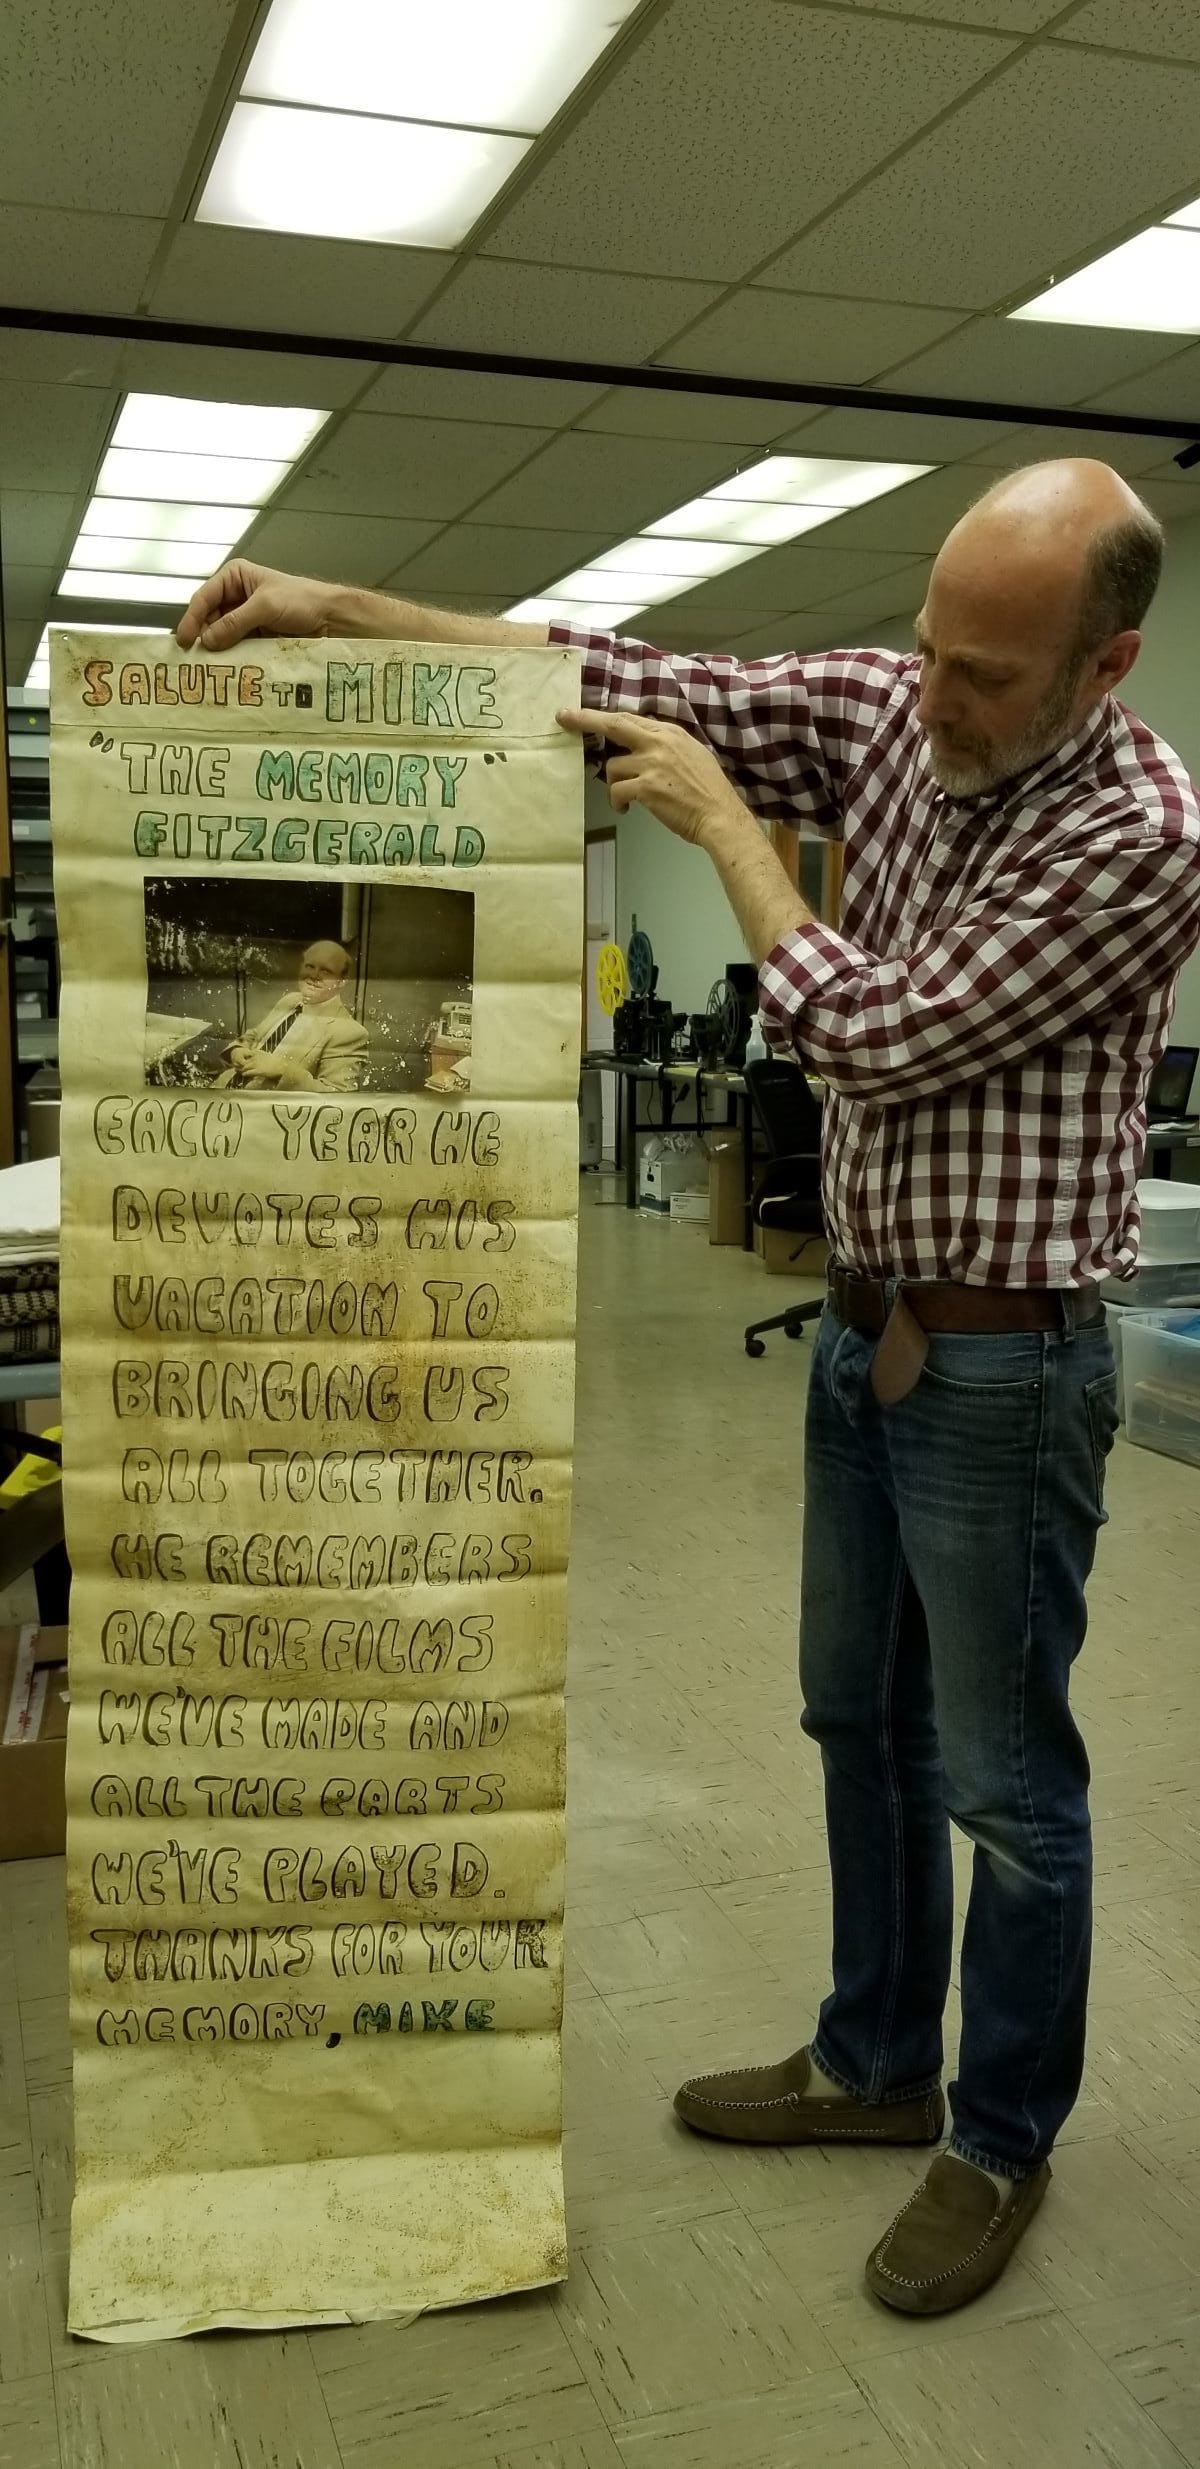 SALUTE TO MIKE
"THE MEMORY"
FITZGERALD
EACH YEAR HE
DEVOTES HIS
VACATION TO
BRINGING US
ALL TOGETHER.
HE REMEMBERS
ALL THE FILMS
WE'VE MADE AND
ALL THE PARTS
WE'VE PLAYED.
THANKS FOR YOUR
MEMORY, MIKE